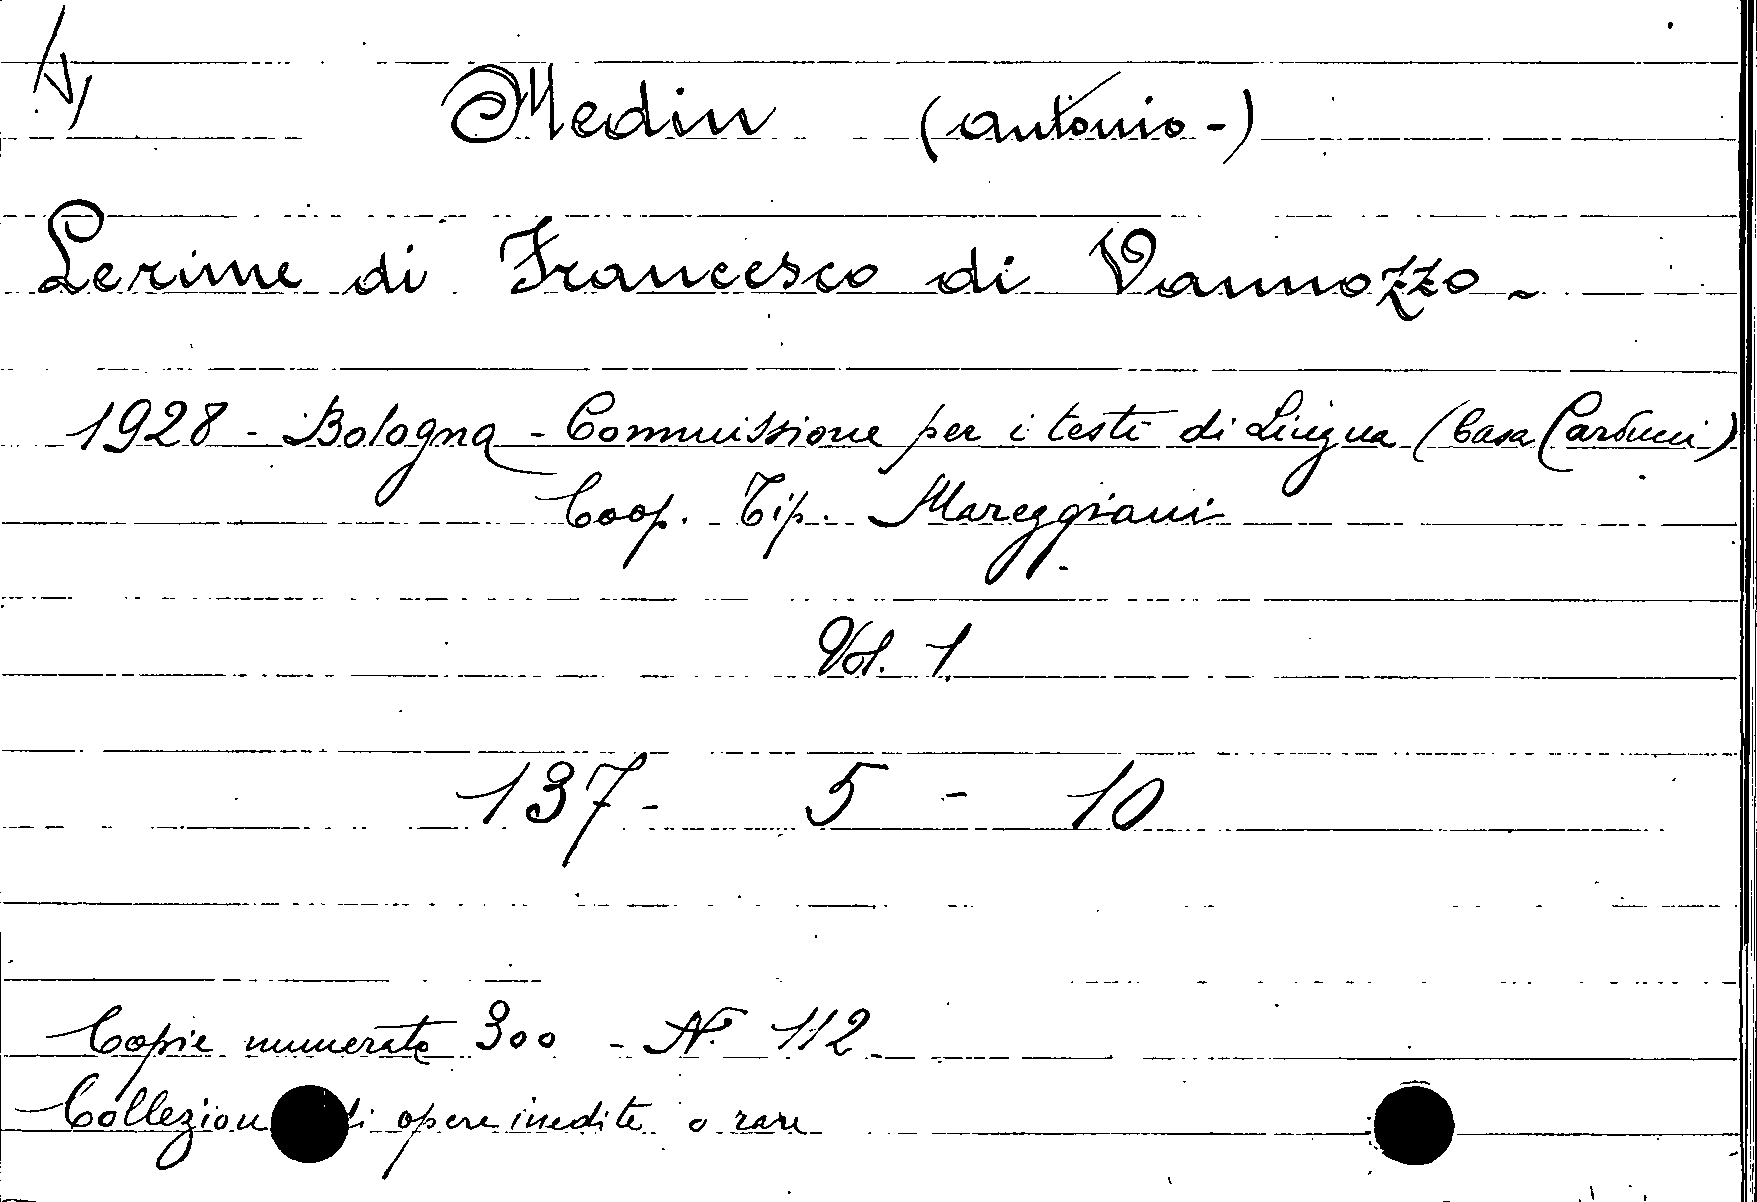 Medin (Antonio-)
Le rime di Francesco di Vannozzo -
1928 - Bologna - Commissione per i testi di Lingua (Casa Carducci)
Coop. Tip. Mareggiani
Vol. 1
137 - 5 - 10
Copie numerate 300 - N. 112
Collezion di opere inedite o rare